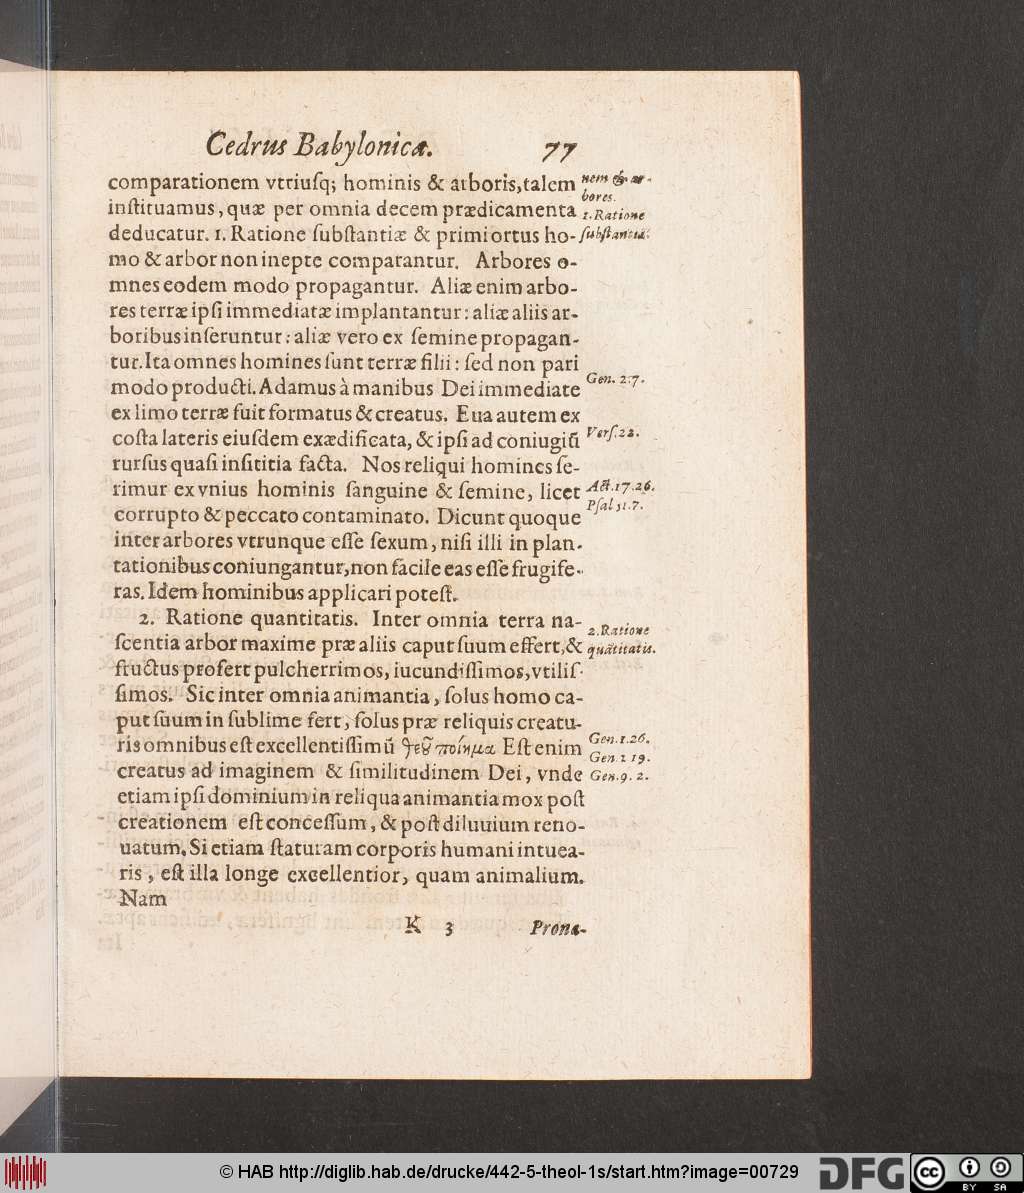 Cedrus Babylonica. 77
comparationem vtriuſq; hominis & arboris, talem
inſtituamus, quæ per omnia decem prædicamenta
deducatur. 1. Ratione ſubſtantiæ & primiortus ho-
mo & arbor non inepte comparantur. Arbores o-
mnes eodem modo propagantur. Aliæ enim arbo-
res terræ ipſi immediatæ implantantur: aliæ aliis ar-
boribus inſeruntur: aliæ vero ex ſemine propagan-
tur. Ita omnes homines ſunt terræ filii: ſed non pari
modo producti. Adamus à manibus Dei immediate
ex limo terræ fuit formatus & creatus. Eua autem ex
coſta lateris eiuſdem exædificata, & ipſi ad coniugiũ
rurſus quaſi inſititia facta. Nos reliqui homines ſe-
rimur ex vnius hominis ſanguine & ſemine, licet
corrupto & peccato contaminato. Dicunt quoque
inter arbores vtrunque eſſe ſexum, niſi illi in plan-
tationibus coniungantur, non facile eas eſſe frugife-
ras. Idem hominibus applicari poteſt.
2. Ratione quantitatis. Inter omnia terra na-
ſcentia arbor maxime præ aliis caput ſuum effert, &
fructus profert pulcherrimos, iucundiſſimos, vtiliſ-
ſimos. Sic inter omnia animantia, ſolus homo ca-
put ſuum in ſublime fert, ſolus præ reliquis creatu-
ris omnibus eſt excellentiſſimũ θεȣ͂ ποίημα Eſt enim
creatus ad imaginem & ſimilitudinem Dei, vnde
etiam ipſi dominium in reliqua animantia mox poſt
creationem eſt conceſſum, & poſt diluuium reno-
uatum. Si etiam ſtaturam corporis humani intuea-
ris, eſt illa longe excellentior, quam animalium.
Nam
K 3 Prona-
nem & ar-
bores.
1. Ratione
ſubſtantiæ.
Gen. 2.7.
Verſ. 22.
Act. 17. 26.
Pſal 51. 7.
2. Ratione
quãtitatis.
Gen. 1. 26.
Gen. 2 19.
Gen. 9. 2.
© HAB http://diglib.hab.de/drucke/442-5-theol-1s/start.htm?image=00729
DFG
cc
BY SA